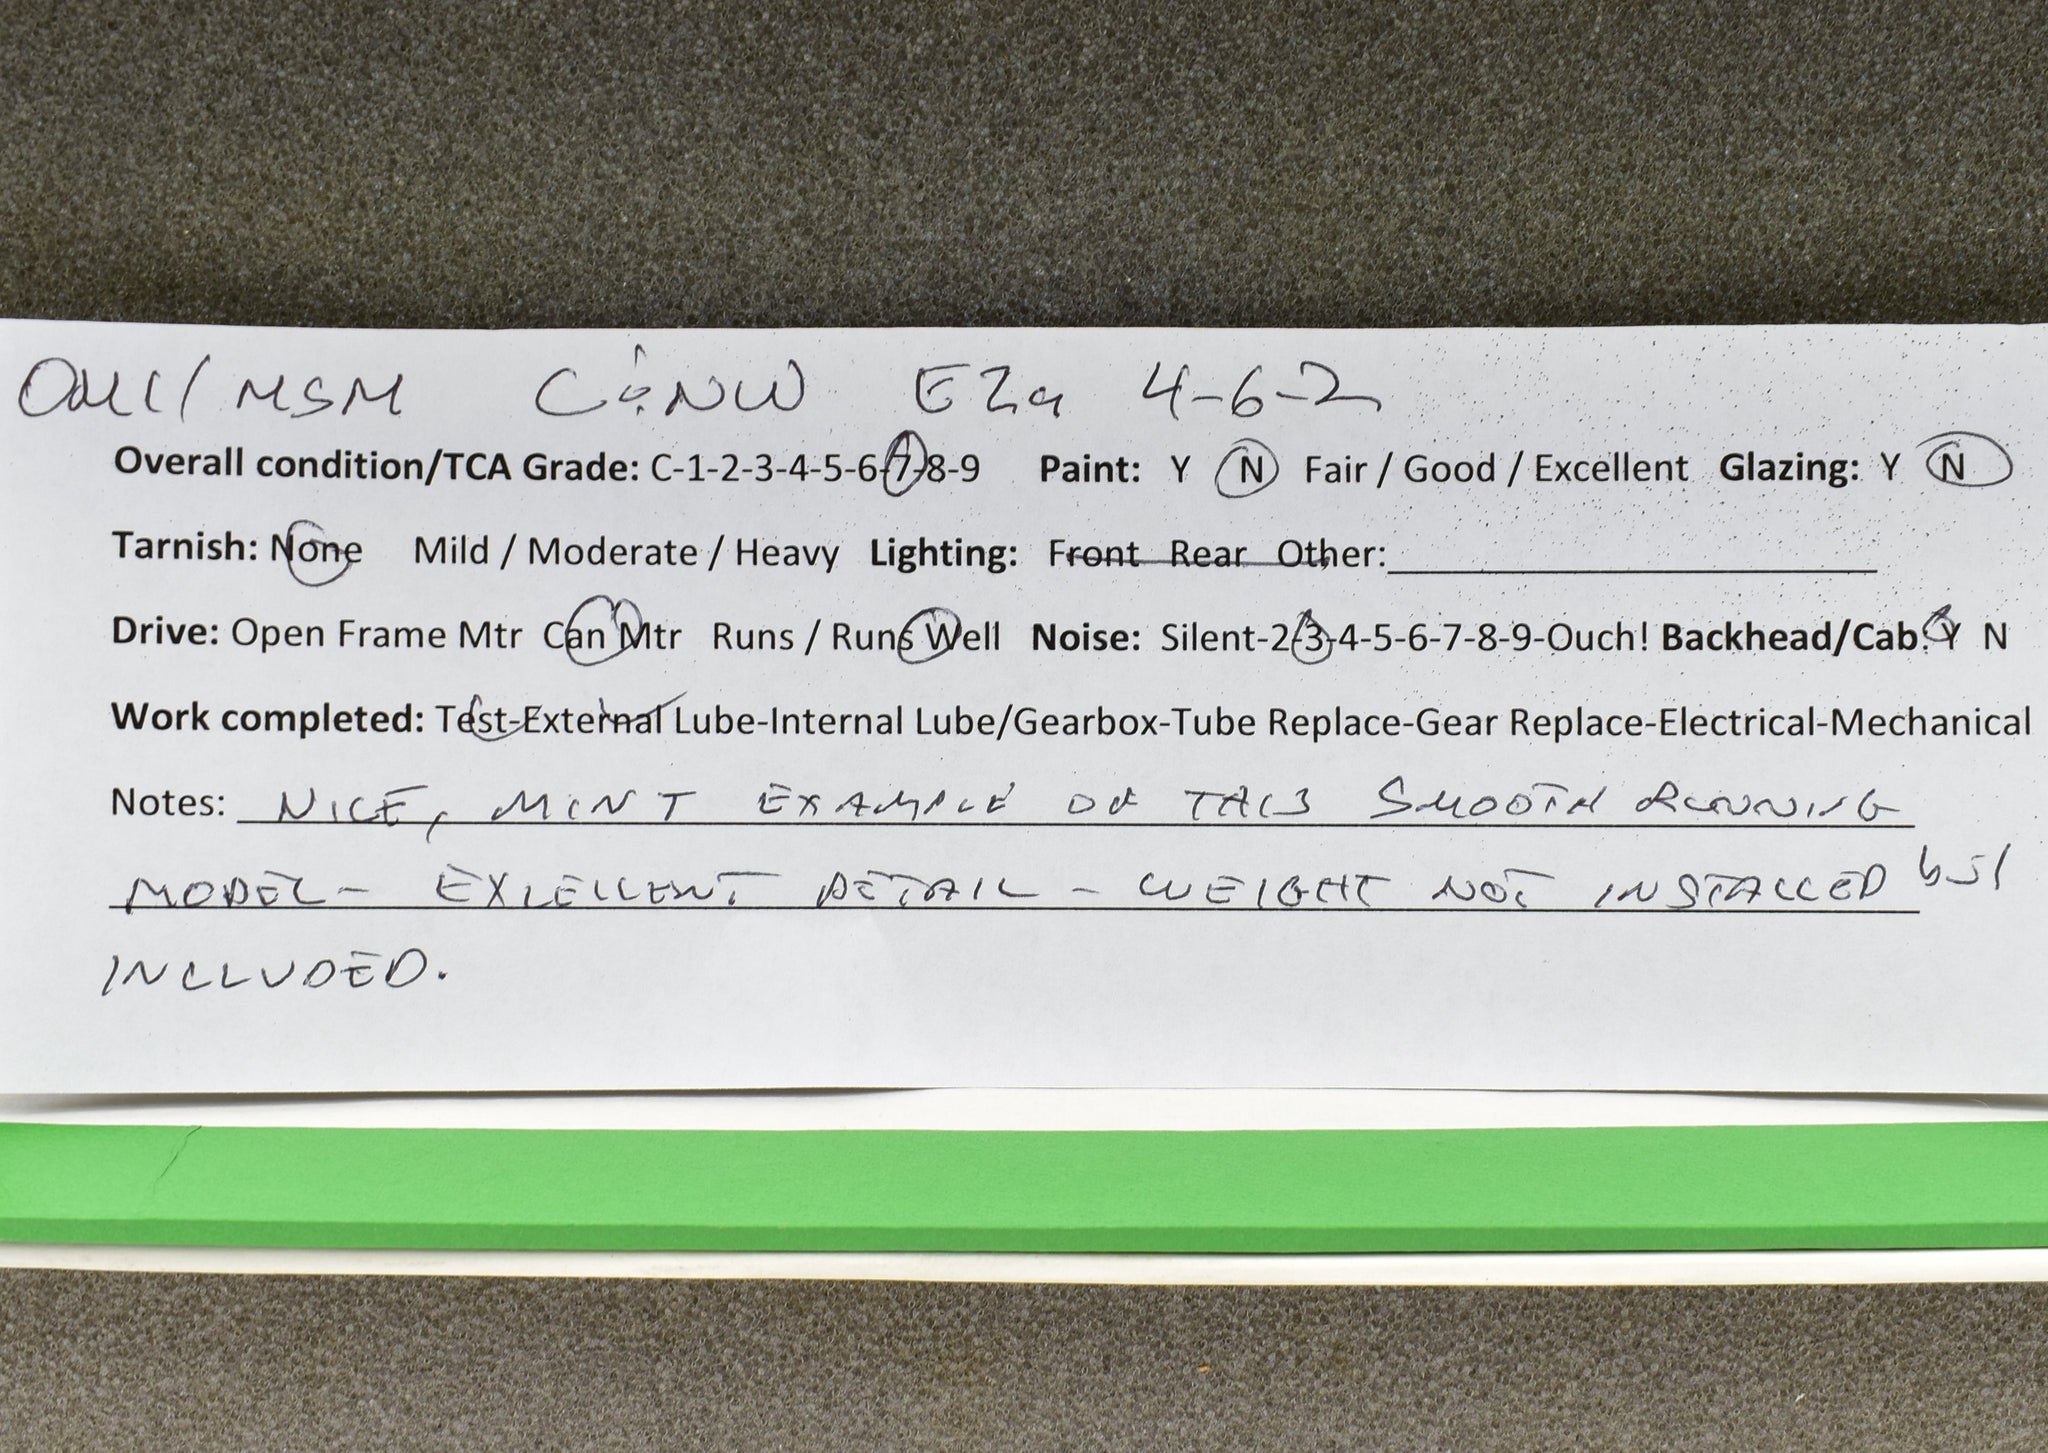 OMI/MSM C&NW E2a 4-6-2
Overall condition/TCA Grade: C-1-2-3-4-5-6-7-8-9 Paint: Y N Fair / Good / Excellent Glazing: Y N
Tarnish: None Mild / Moderate / Heavy Lighting: Front Rear Other:
Drive: Open Frame Mtr Can Mtr Runs / Runs Well Noise: Silent-2-3-4-5-6-7-8-9-Ouch! Backhead/Cab: Y N
Work completed: Test-External Lube-Internal Lube/Gearbox-Tube Replace-Gear Replace-Electrical-Mechanical
Notes: NICE, MINT EXAMPLE OF THIS SMOOTH RUNNING
MODEL - EXCELLENT DETAIL - WEIGHT NOT INSTALLED but
INCLUDED.